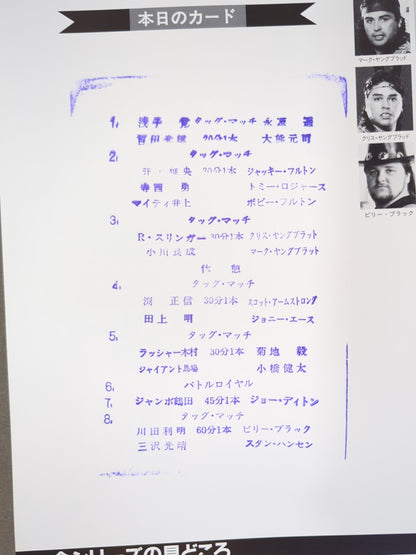 本日のカード
マーク・ヤングブラッド
クリス・ヤングブラッド
ビリー・ブラック
1, 浅子 覚 タッグ・マッチ 永源 遥
20分1本 大熊元司
2, タッグ・マッチ
20分1本 ジャッキー・フルトン
寺西 勇 トミー・ロジャース
マイティ井上 ボビー・フルトン
3, タッグ・マッチ
R・スリンガー 30分1本 クリス・ヤングブラット
小川良成 マーク・ヤングブラット
休憩
4, タッグ・マッチ
渕 正信 30分1本 スコット・アームストロング
田上 明 ジョニー・エース
5, タッグ・マッチ
ラッシャー木村 30分1本 菊地 毅
ジャイアント馬場 小橋健太
6, バトルロイヤル
7, ジャンボ鶴田 45分1本 ジョー・ディトン
8, タッグ・マッチ
川田利明 60分1本 ビリー・ブラック
三沢光晴 スタン・ハンセン
シリーズの見どころ